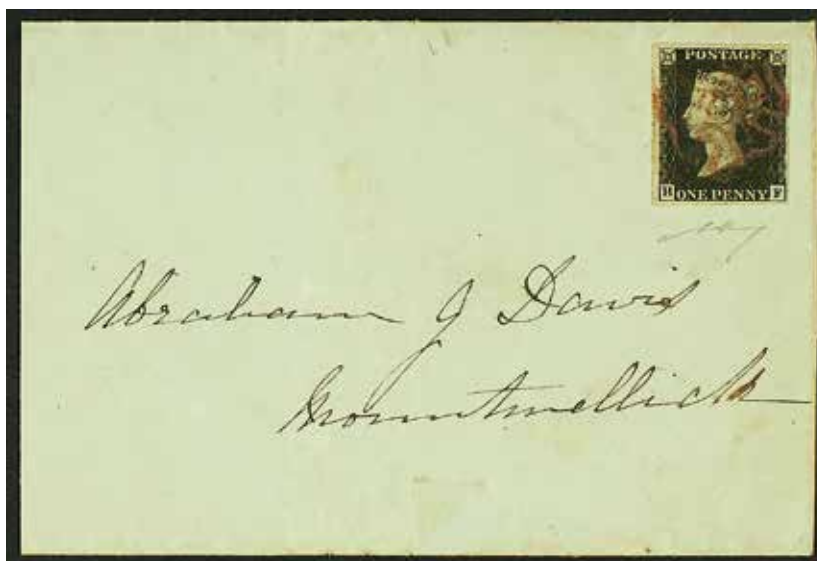 POSTAGE
B ONE PENNY F
Abraham J Davis
Mountmellick